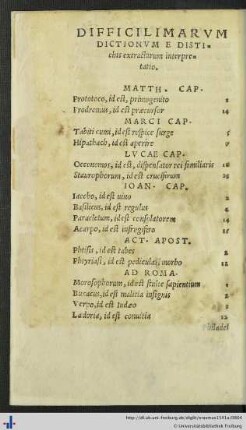 DIFFICILIMARVM
DICTIONVM E DISTI-
chis extractarum interpre-
tatio.
MATTH. CAP.
Prototoco, id est, primogenito 2
Prodromus, id est præcursor 14
MARCI CAP.
Tabiti cumi, id est respice surge 5
Hiphathach, id est aperire
LVCAE CAP.
Oeconomos, id est, dispensator rei familiaris 16
Staurophorum, id est crucifer̄um
IOAN. CAP.
Iaccho, id est uino 2
Basilicus, id est regulus 4
Paracletum, id est consolatorem 14
Acarpo, id est infrugifero 15
ACT. APOST.
Phthisis, id est tabes 2
Phtyriasi, id est pediculari morbo 12
AD ROMA.
Morosophorum, id est stulte sapientium 1
id est malitia insignis 2
Verpo, id est iudæo 3
Ladoria, id est conuitia 12